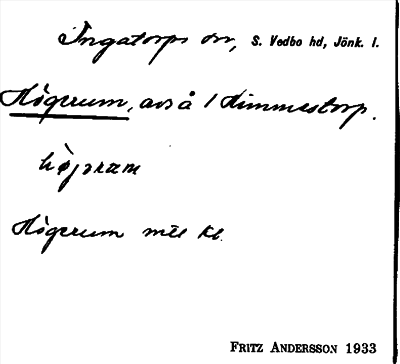 Ingatorps sn, S. Vedbo hd, Jönk. l.
Högerum, avs å 1 Himmestorp.
Högerum mtl kb.
FRITZ ANDERSSON 1933